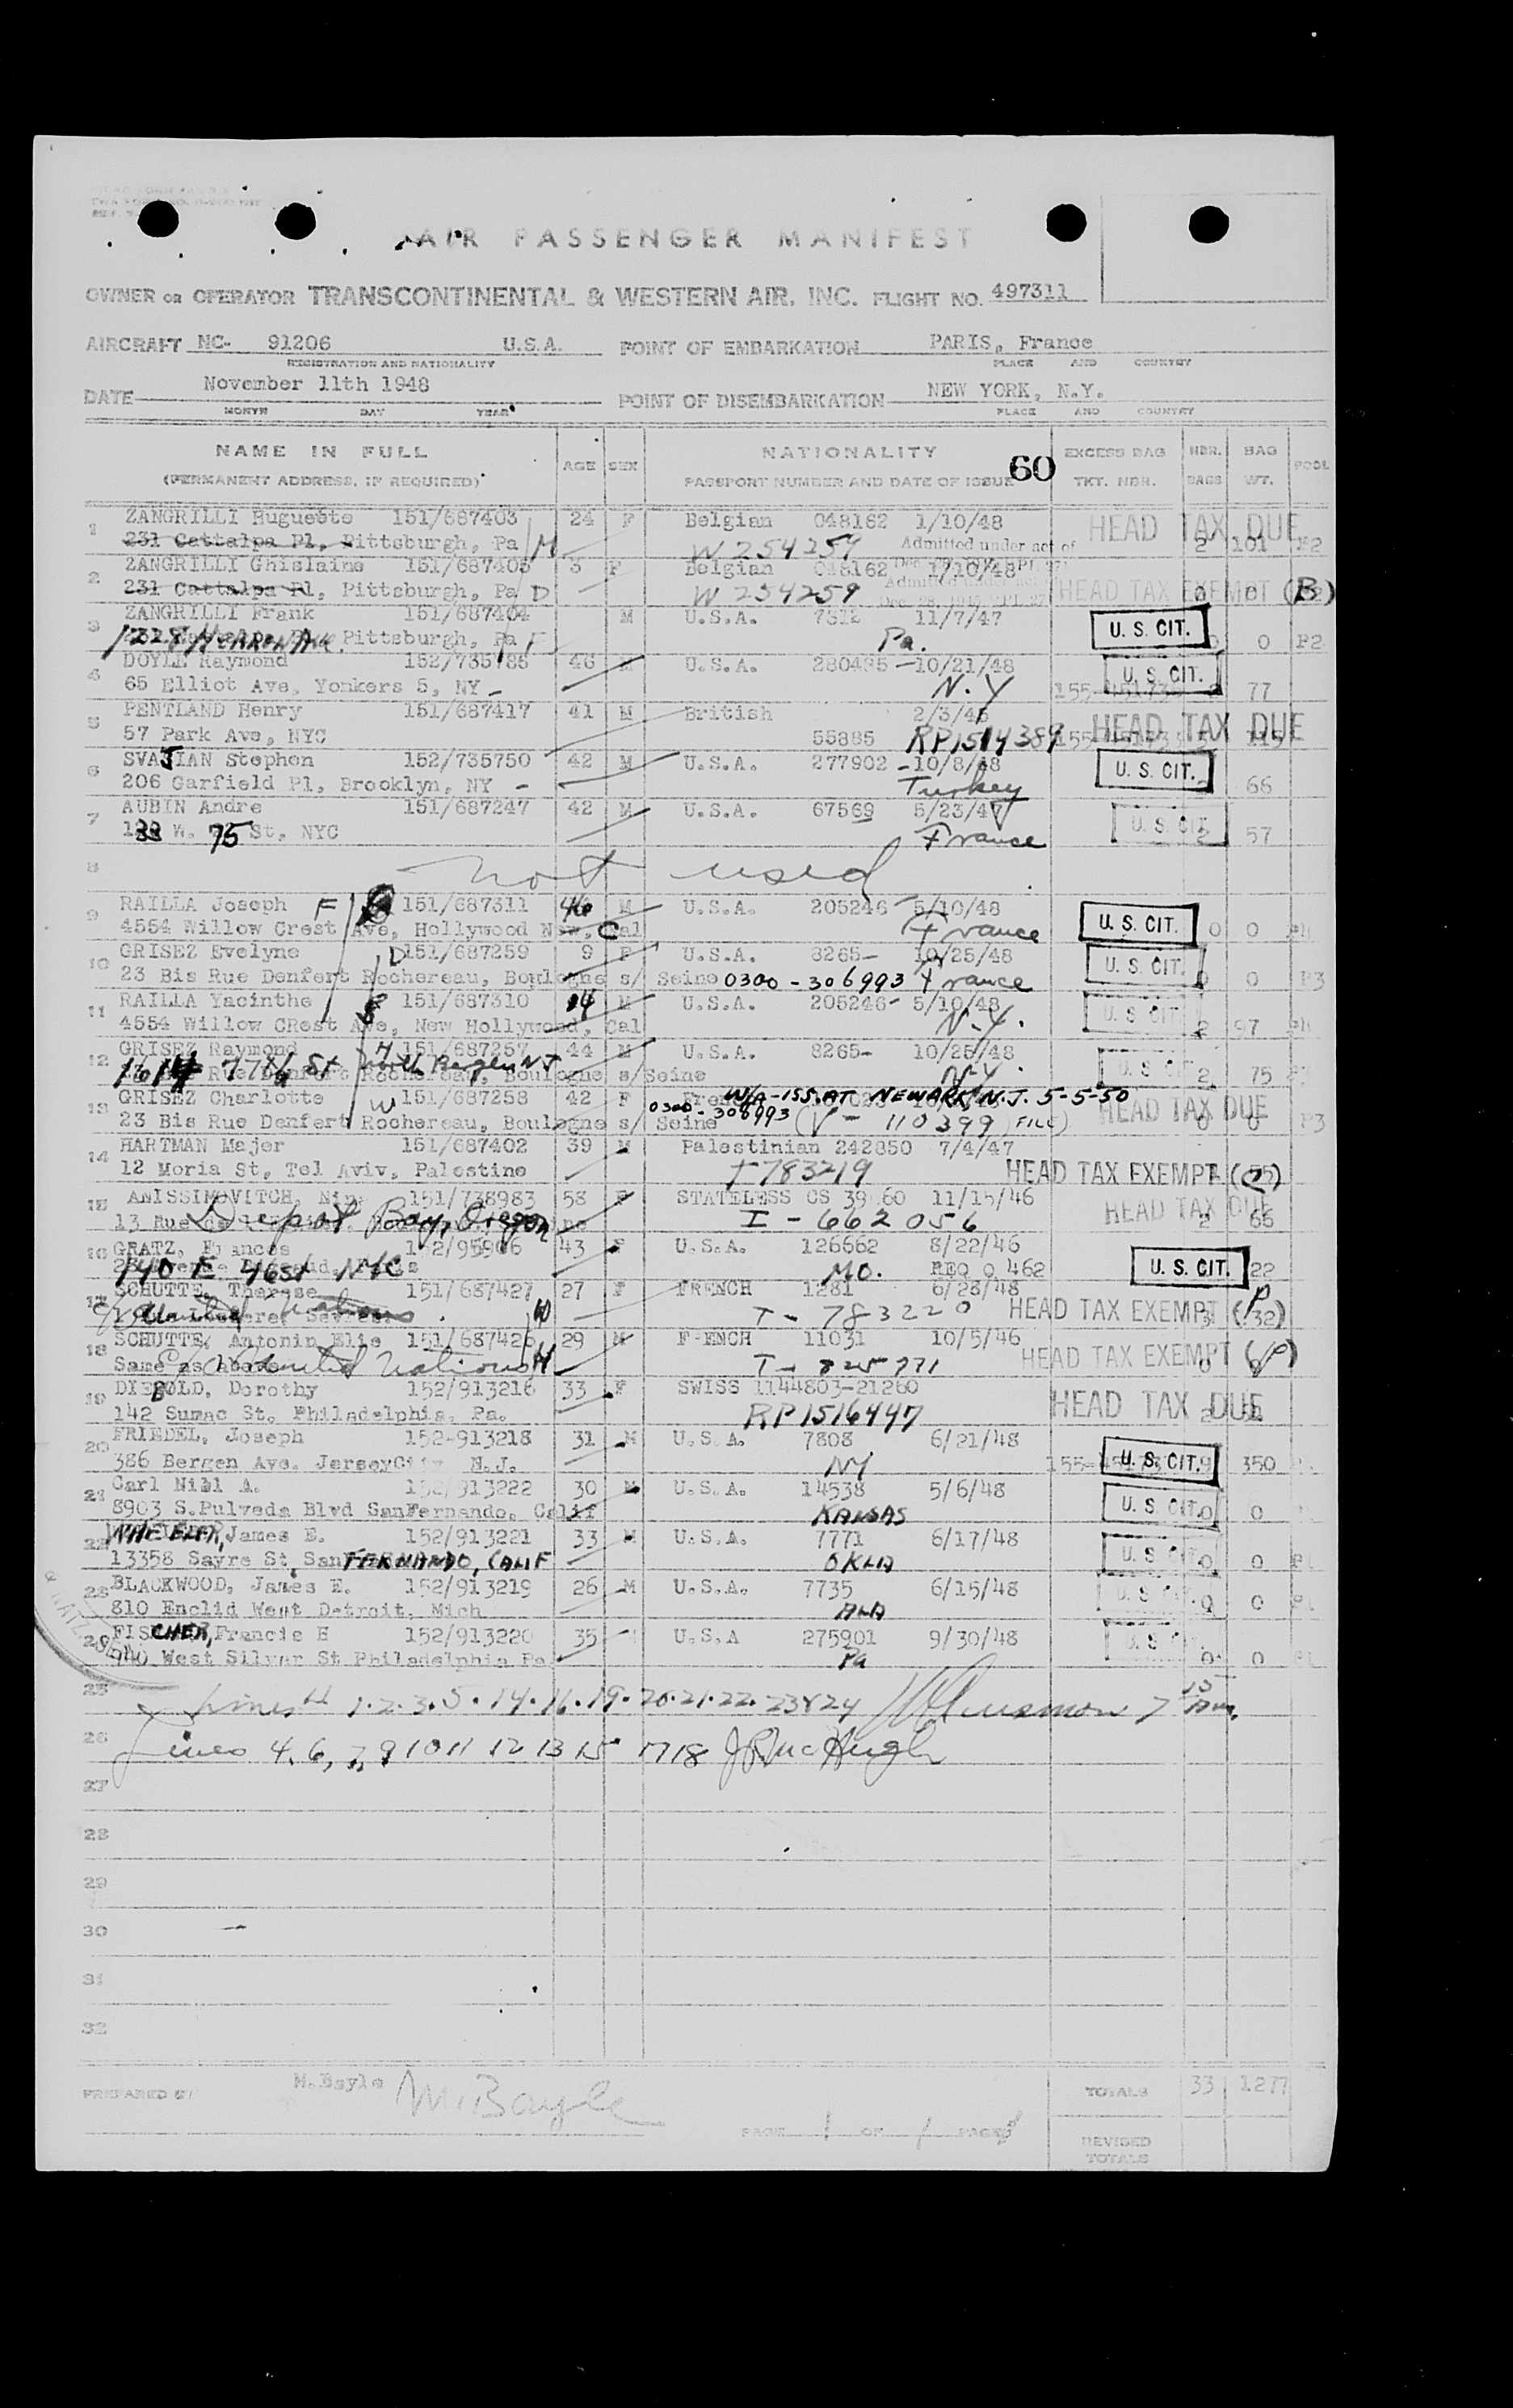 AIR PASSENGER MANIFEST
OWNER OR OPERATOR TRANSCONTINENTAL & WESTERN AIR, INC. FLIGHT NO. 497311
AIRCRAFT NC- 91206 U.S.A. POINT OF EMBARKATION PARIS, France
REGISTRATION AND NATIONALITY PLACE AND COUNTRY
DATE November 11th 1948 POINT OF DISEMBARKATION NEW YORK, N.Y.
MONTH DAY YEAR PLACE AND COUNTRY
NAME IN FULL AGE SEX NATIONALITY 60 EXCESS BAG NBR. BAG POOL
(PERMANENT ADDRESS, IF REQUIRED) PASSPORT NUMBER AND DATE OF ISSUE TKT. NBR. BAGS WT.
1 ZANGRILLI Huguette 151/687403 24 F Belgian 048162 1/10/48 HEAD TAX DUE
231 Cattalpa Pl, Pittsburgh, Pa M W 254259 Admitted under act of 2 101 P2
2 ZANGRILLI Ghislaine 151/687405 3 F Belgian 048162 1/10/48
231 Cattalpa Pl, Pittsburgh, Pa D W 254259 HEAD TAX EXEMPT (B)
3 ZANGRILLI Frank 151/687404 M U.S.A. 7812 11/7/47 U. S. CIT.
Pittsburgh, Pa F Pa. 0 0 P2
4 DOYLE Raymond 152/735785 46 M U.S.A. 280485 - 10/21/48 U. S. CIT.
65 Elliot Ave, Yonkers 5, NY - N.Y 77
5 PENTLAND Henry 151/687417 41 M British 2/3/45 HEAD TAX DUE
57 Park Ave, NYC 55885 RP1514389 115
6 SVAJIAN Stephen 152/735750 42 M U.S.A. 277902 - 10/8/48 U. S. CIT.
206 Garfield Pl, Brooklyn, NY - Turkey 66
7 AUBIN Andre 151/687247 42 M U.S.A. 67569 5/23/47 U. S. CIT
W. 75 St, NYC France 2 57
8 not used
9 RAILLA Joseph F 151/687311 46 M U.S.A. 205246 5/10/48 U. S. CIT.
4554 Willow Crest Ave, Hollywood Cal France 0 0
10 GRISEZ Evelyne D 151/687259 9 F U.S.A. 8265- 10/25/48 U. S. CIT.
23 Bis Rue Denfert Rochereau, Boulogne s/ Seine 0300-306993 France 0 0 P3
11 RAILLA Yacinthe S 151/687310 14 M U.S.A. 205246- 5/10/48 U. S. CIT
4554 Willow CRest Ave, New Hollywood, Cal N.Y. 2 97
12 GRISEZ Raymond H 151/687257 44 M U.S.A. 8265- 10/25/48 U. S. CIT
Boulogne s/Seine N.Y. 2 75
13 GRISEZ Charlotte W 151/687258 42 F W/A-ISS. AT NEWARK N.J. 5-5-50 HEAD TAX DUE
23 Bis Rue Denfert Rochereau, Boulogne s/ Seine 0300-308993 (V- 110399 FILE) 0 0 P3
14 HARTMAN Majer 151/687402 39 M Palestinian 242850 7/4/47
12 Moria St, Tel Aviv, Palestine T-783219 HEAD TAX EXEMPT (C)
15 ANISSIMOVITCH, Nina 151/738983 58 F STATELESS CS 39 60 11/15/46 HEAD TAX DUE
Depot Bay, Oregon I-662056 2 66
16 GRATZ, Frances 152/95906 43 F U.S.A. 126662 8/22/46
140 E 46st NYC MO. REO Q 462 U. S. CIT. 22
17 SCHUTTE, Therese 151/687427 27 F FRENCH 1281 6/28/48
c/o United Nations W T-783220 HEAD TAX EXEMPT (P) 32
18 SCHUTTE, Antonin Elie 151/687426 29 M F-ENCH 11031 10/5/46
Same as above c/o United Nations H T-825771 HEAD TAX EXEMPT (P)
19 DIEBOLD, Dorothy 152/913216 33 F SWISS 1144803-21260
142 Sumac St. Philadelphia, Pa. RP1516447 HEAD TAX DUE
20 FRIEDEL, Joseph 152-913218 31 M U.S.A. 7808 6/21/48 U. S. CIT.
386 Bergen Ave. JerseyCity N.J. NY 9 350
21 Carl Nihl A. 152/913222 30 M U.S.A. 14538 5/6/48 U. S. CIT
8903 S.Pulveda Blvd SanFernando, Calif KANSAS 0 0
22 WHEELER, James E. 152/913221 33 M U.S.A. 7771 6/17/48 U. S. CIT
13358 Sayre St San FERNANDO, CALIF OKLA 0 0
23 BLACKWOOD, James E. 152/913219 26 M U.S.A. 7735 6/15/48 U. S. C
810 Enclid West Detroit, Mich ALA 0 0
24 FISCHER, Francis H 152/913220 35 U.S.A 275901 9/30/48 U. S.
940 West Silver St Philadelphia Pa Pa 0 0
25 Lines 1.2.3.5.14.16.19.20.21.22.23&24
26 Lines 4.6,7,9 10 11 12 13 15 17 18 J McHugh
27
28
29
30
31
32
PREPARED BY M.Bayle M. Bayle TOTALS 33 1277
PAGE 1 OF 1 PAGES REVISED TOTALS